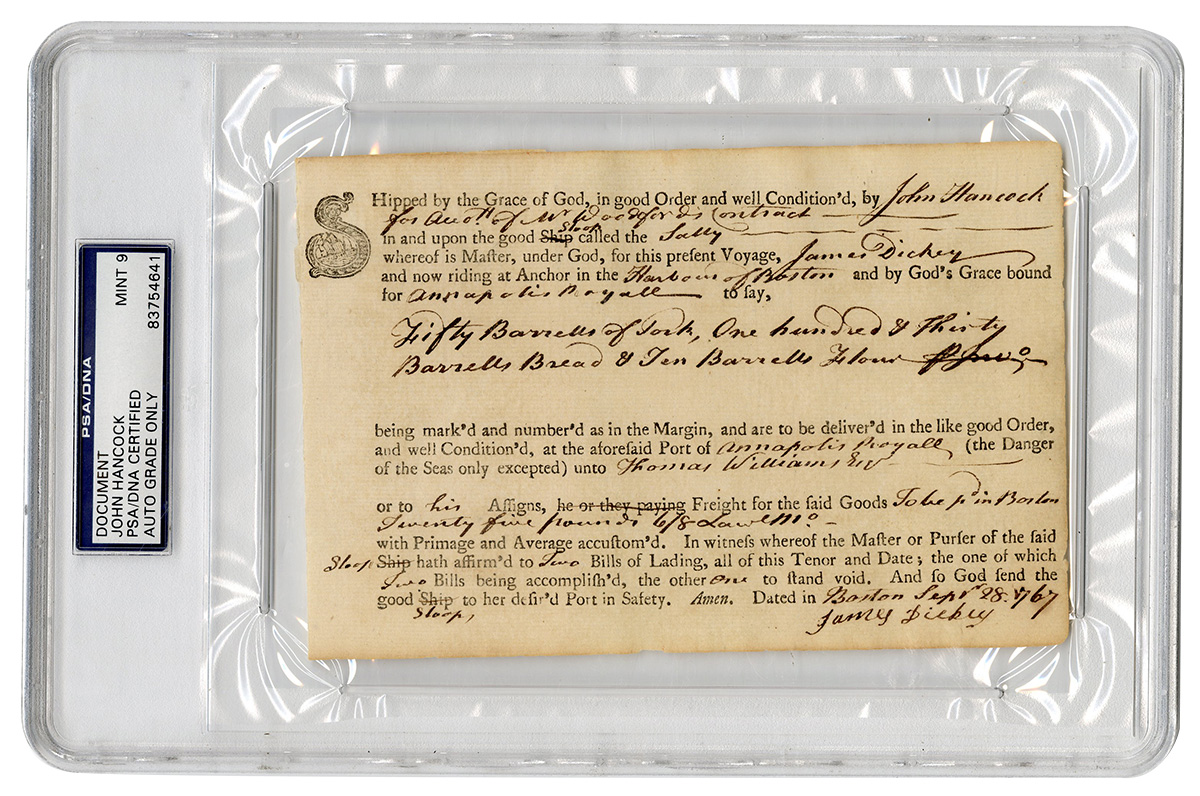 PSA/DNA
DOCUMENT
JOHN HANCOCK
PSA/DNA CERTIFIED
AUTO GRADE ONLY
MINT 9
83754641
SHipped by the Grace of God, in good Order and well Condition'd, by John Hancock
for Accott of Mr Woodfords Contract
Sloop
in and upon the good Ship called the Sally
whereof is Maſter, under God, for this preſent Voyage, James Dickey
and now riding at Anchor in the Harbour of Boston and by God's Grace bound
for Annapolis Royall to ſay,
Fifty Barrells of Pork, One hundred & Thirty
Barrells Bread & Ten Barrells Flour
being mark'd and number'd as in the Margin, and are to be deliver'd in the like good Order,
and well Condition'd, at the aforeſaid Port of Annapolis Royall (the Danger
of the Seas only excepted) unto Thomas Williams Esqr
or to his Aſſigns, he or they paying Freight for the ſaid Goods To be pd in Boston
Twenty five pounds 6/8 Lawl Mo
with Primage and Average accuſtom'd. In witneſs whereof the Maſter or Purſer of the ſaid
Sloop Ship hath affirm'd to Two Bills of Lading, all of this Tenor and Date; the one of which
Two Bills being accompliſh'd, the other one to ſtand void. And ſo God ſend the
good Ship to her deſir'd Port in Safety. Amen. Dated in Boston Sepr 28. 1767
Sloop
James Dickey